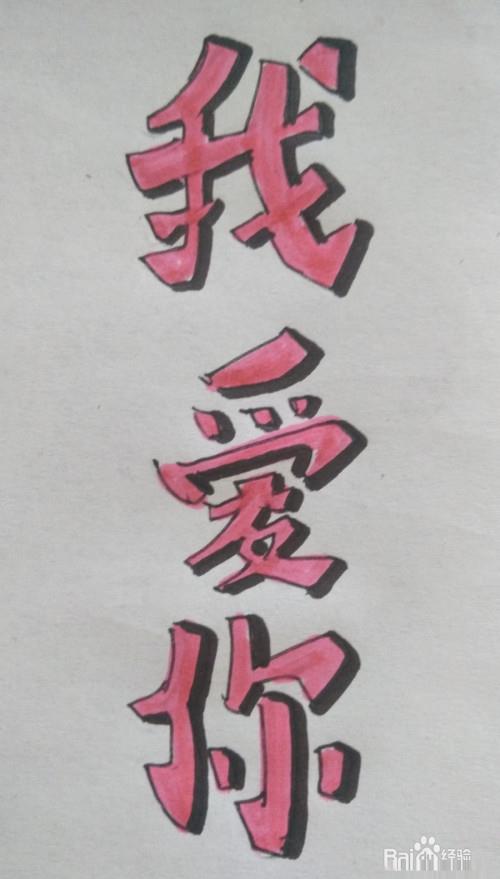 我
爱
你
Bai 经验